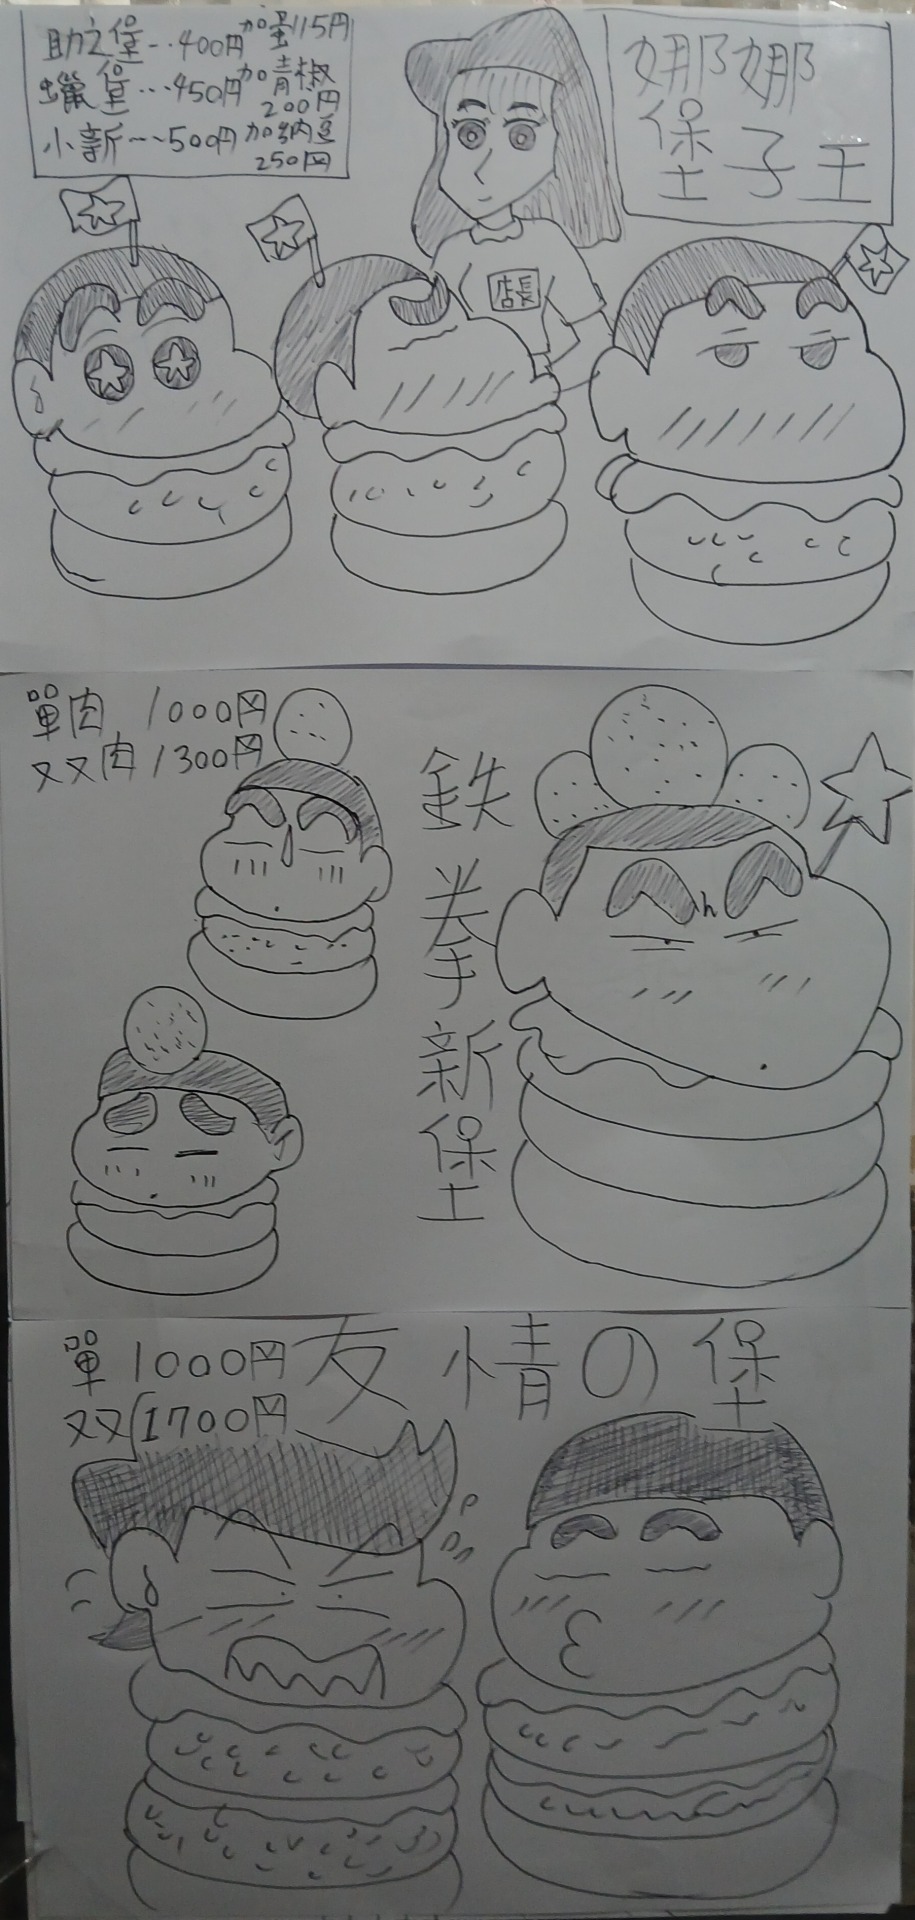 助之堡‥‥400円 加蛋115円
蠟堡…450円 加青椒200円
小新…500円 加納豆250円
娜娜
堡子王
店長
單肉 1000円
双肉 1300円
鉄拳新堡
單 1000円
双 1700円
友情の堡